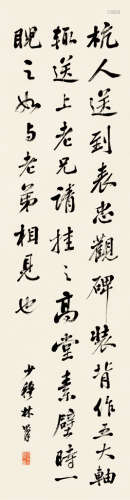 杭人送到表忠觀碑裝背作五大軸
輒送上老兄請挂之高堂素壁時一
睨之如与老弟相見也
少穆林